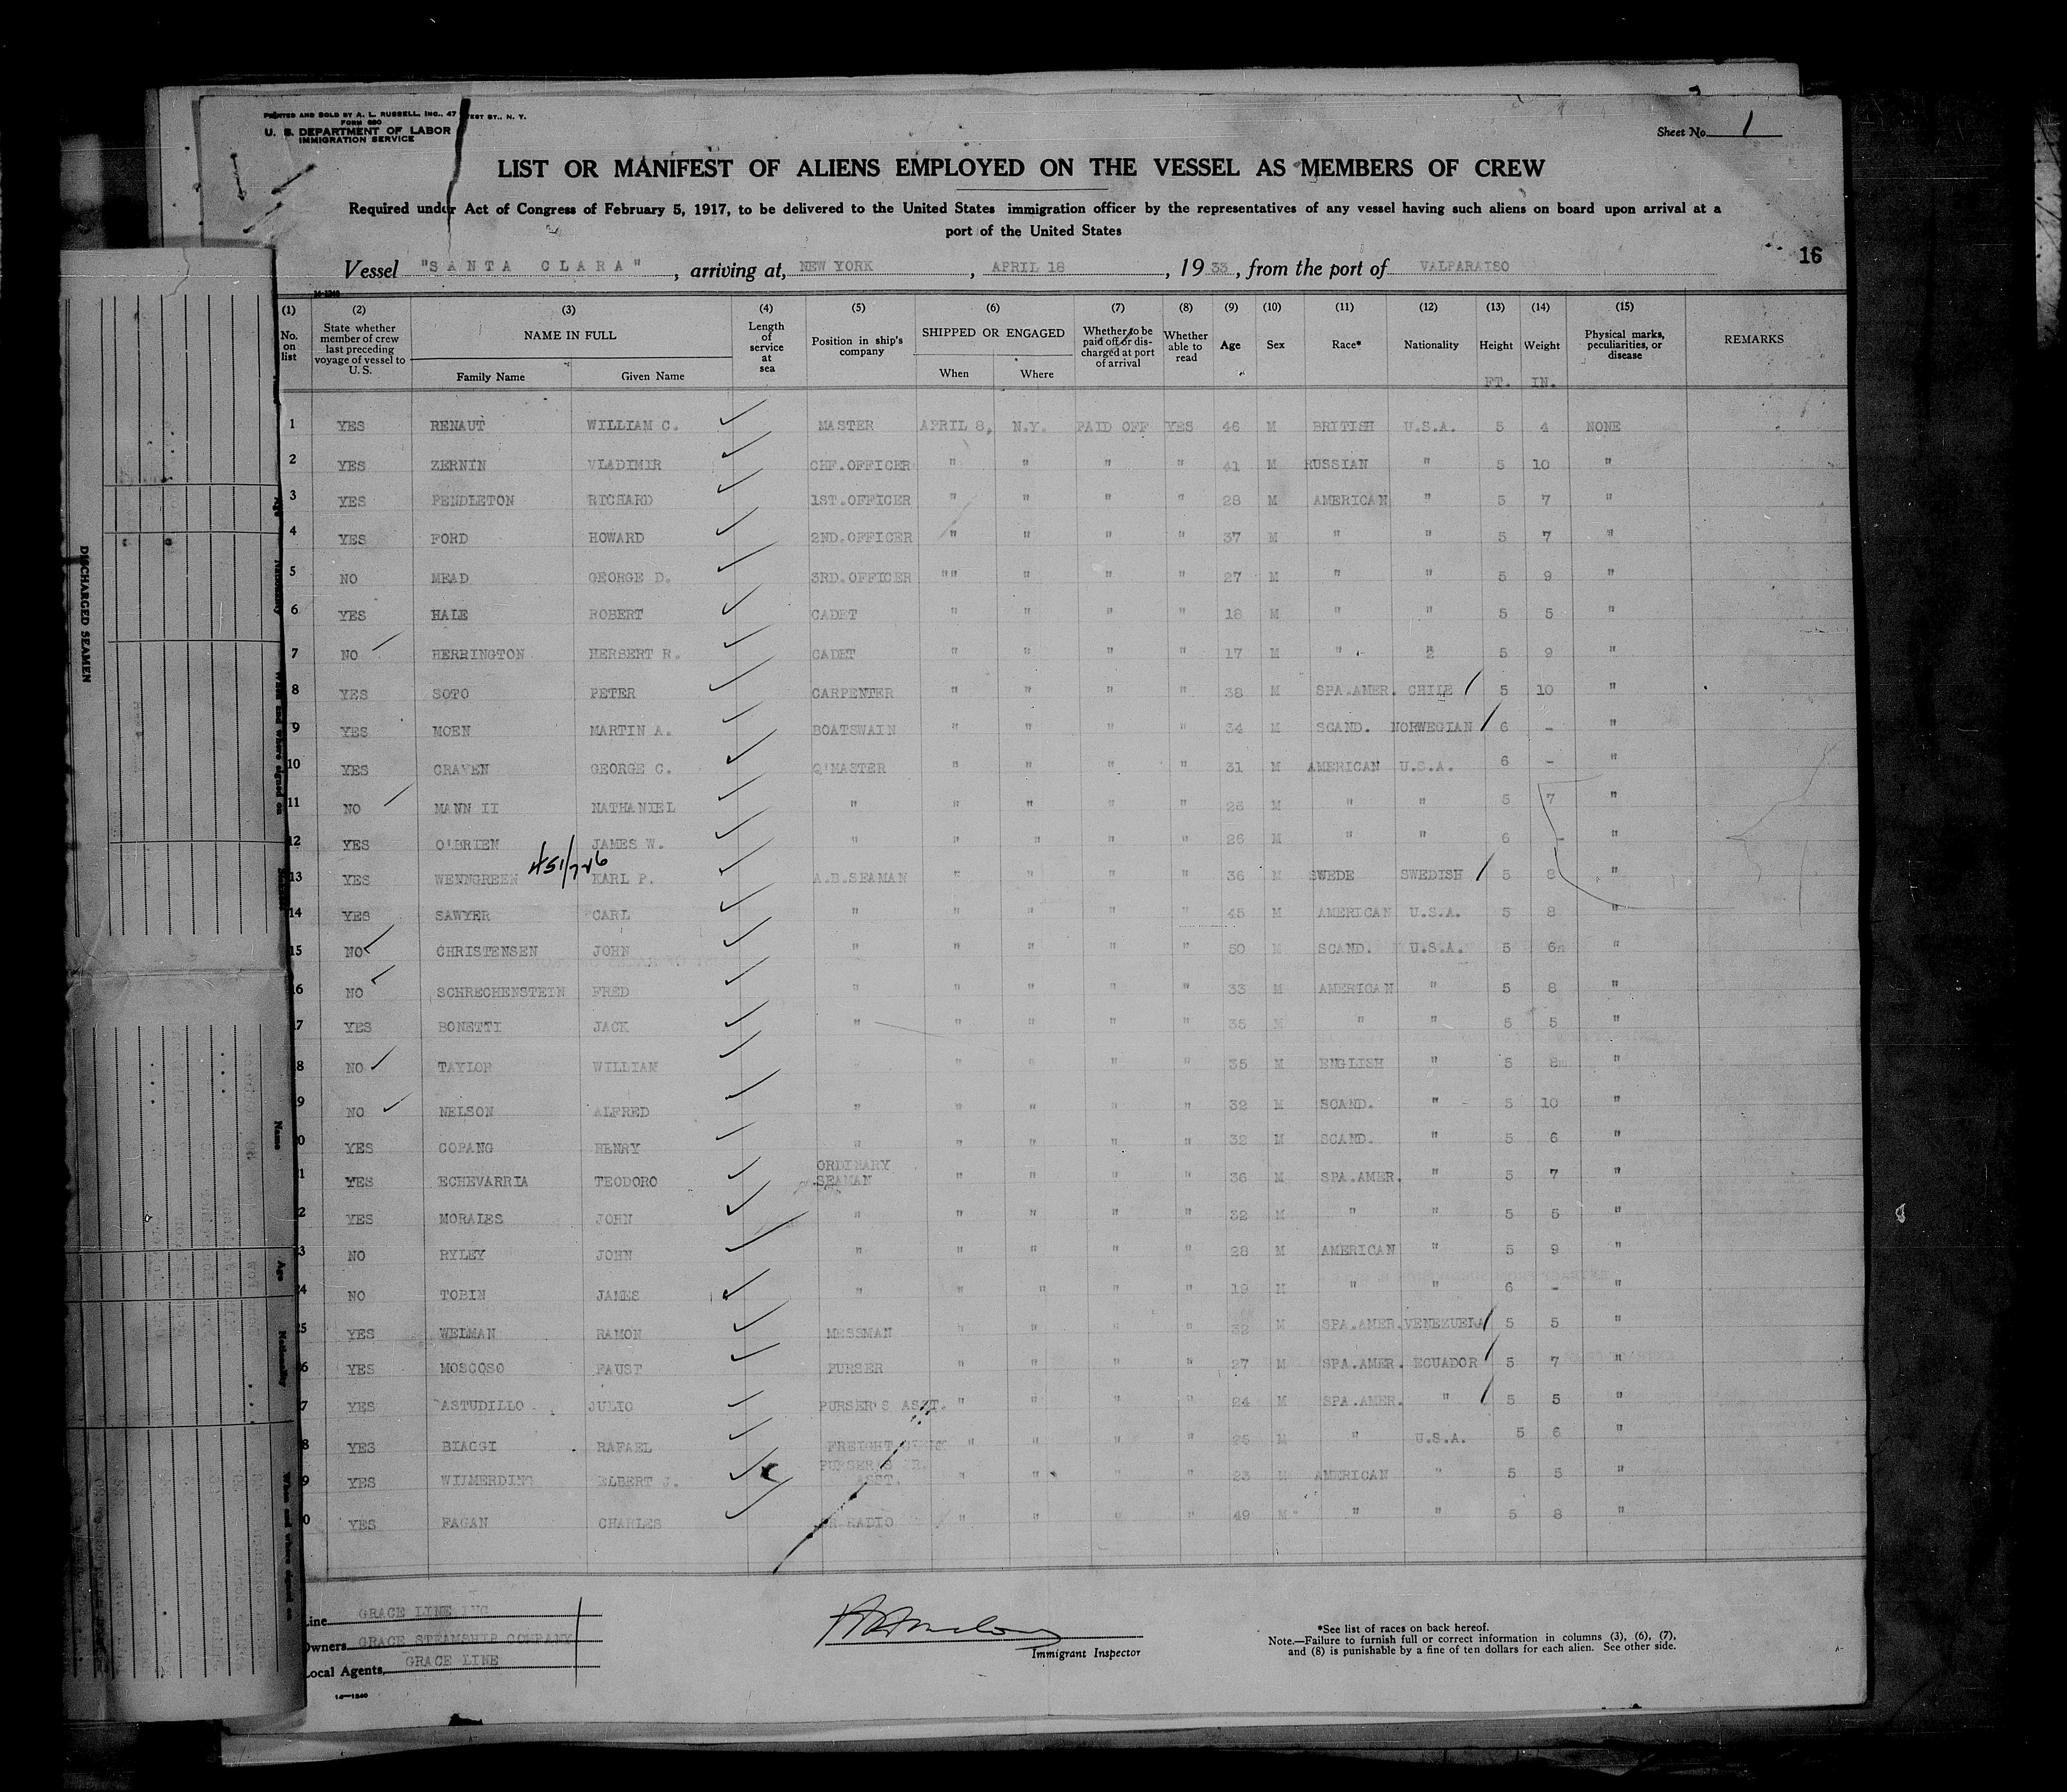 PRINTED AND SOLD BY A. L. RUSSELL, INC., 47 WEST ST., N. Y.
FORM 680
U. S. DEPARTMENT OF LABOR
IMMIGRATION SERVICE
Sheet No. 1
LIST OR MANIFEST OF ALIENS EMPLOYED ON THE VESSEL AS MEMBERS OF CREW
Required under Act of Congress of February 5, 1917, to be delivered to the United States immigration officer by the representatives of any vessel having such aliens on board upon arrival at a
port of the United States
16
Vessel "SANTA CLARA", arriving at, NEW YORK, APRIL 18, 1933, from the port of VALPARAISO
14-1240
(1) (2) (3) (4) (5) (6) (7) (8) (9) (10) (11) (12) (13) (14) (15)
No. on list State whether member of crew last preceding voyage of vessel to U. S. NAME IN FULL Family Name Given Name Length of service at sea Position in ship's company SHIPPED OR ENGAGED When Where Whether to be paid off or discharged at port of arrival Whether able to read Age Sex Race* Nationality Height Weight Physical marks, peculiarities, or disease REMARKS
FT. IN.
1 YES RENAUT WILLIAM C. MASTER APRIL 8, N.Y. PAID OFF YES 46 M BRITISH U.S.A. 5 4 NONE
2 YES ZERNIN VLADIMIR CHF.OFFICER " " " " 41 M RUSSIAN " 5 10 "
3 YES PENDLETON RICHARD 1ST.OFFICER " " " " 28 M AMERICAN " 5 7 "
4 YES FORD HOWARD 2ND.OFFICER " " " " 37 M " " 5 7 "
5 NO MEAD GEORGE D. 3RD.OFFICER "" " " " 27 M " " 5 9 "
6 YES HALE ROBERT CADET " " " " 18 M " " 5 5 "
7 NO HERRINGTON HERBERT R. CADET " " " " 17 M " 2 5 9 "
8 YES SOTO PETER CARPENTER " " " " 38 M SPA.AMER. CHILE 5 10 "
9 YES MOEN MARTIN A. BOATSWAIN " " " " 34 M SCAND. NORWEGIAN 6 - "
10 YES CRAVEN GEORGE C. Q'MASTER " " " " 31 M AMERICAN U.S.A. 6 - "
11 NO MANN II NATHANIEL " " " " " M " " 5 7 "
12 YES O'BRIEN JAMES W. " " " " " 26 M " " 6 - "
13 YES WENNGREEN 451/726 KARL P. A.B.SEAMAN " " " " 36 M SWEDE SWEDISH 5 8 "
14 YES SAWYER CARL " " " " " 45 M AMERICAN U.S.A. 5 8 "
15 NO CHRISTENSEN JOHN " " " " " 50 M SCAND. U.S.A. 5 6 "
6 NO SCHRECHENSTEIN FRED " " " " " 33 M AMERICAN " 5 8 "
7 YES BONETTI JACK " " " " " 35 M " " 5 5 "
8 NO TAYLOR WILLIAM " " " " " 35 M ENGLISH " 5 8 "
9 NO NELSON ALFRED " " " " " 32 M SCAND. " 5 10 "
0 YES COPANG HENRY " " " " " 32 M SCAND. " 5 6 "
1 YES ECHEVARRIA TEODORO ORDINARY SEAMAN " " " " 36 M SPA.AMER. " 5 7 "
2 YES MORALES JOHN " " " " " 32 M " " 5 5 "
3 NO RYLEY JOHN " " " " " 28 M AMERICAN " 5 9 "
24 NO TOBIN JAMES " " " " " 19 M " " 6 - "
25 YES WELMAN RAMON MESSMAN " " " " 32 M SPA.AMER. VENEZUELA 5 5 "
6 YES MOSCOSO FAUST PURSER " " " " 27 M SPA.AMER. ECUADOR 5 7 "
7 YES ASTUDILLO JULIO PURSER'S ASST. " " " " 24 M SPA.AMER. " 5 5 "
8 YES BIAGGI RAFAEL FREIGHT " " " " 25 M " U.S.A. 5 6 "
9 YES WILMERDING ELBERT J. PURSER'S JR. ASST. " " " " 23 M AMERICAN " 5 5 "
0 YES FAGAN CHARLES RADIO " " " " 49 M " " 5 8 "
Line GRACE LINE INC
Owners GRACE STEAMSHIP COMPANY
Local Agents, GRACE LINE
14-1240
Immigrant Inspector
*See list of races on back hereof.
Note.—Failure to furnish full or correct information in columns (3), (6), (7),
and (8) is punishable by a fine of ten dollars for each alien. See other side.
DISCHARGED SEAMEN
Age
Nationality
When and where signed on
Name
Age
Nationality
When and where signed on